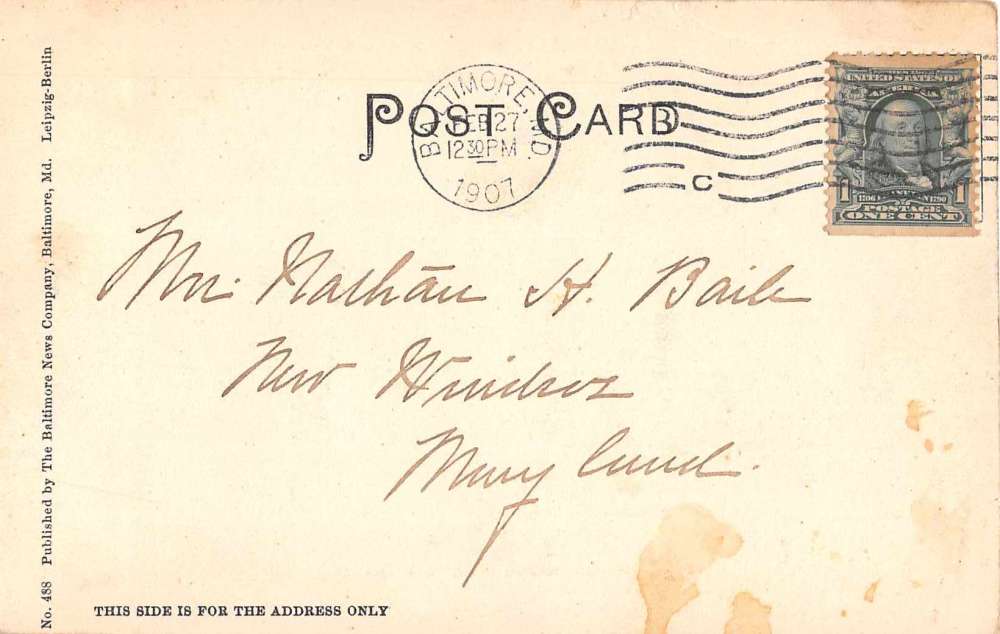 POST CARD
BALTIMORE, MD.
FEB 27
12 30 PM
1907
C
UNITED STATES OF AMERICA
1 1
1706 1790
POSTAGE
ONE CENT
Mr. Nathan H. Baile
New Windsor
Maryland.
THIS SIDE IS FOR THE ADDRESS ONLY
No. 488 Published by The Baltimore News Company, Baltimore, Md. Leipzig-Berlin